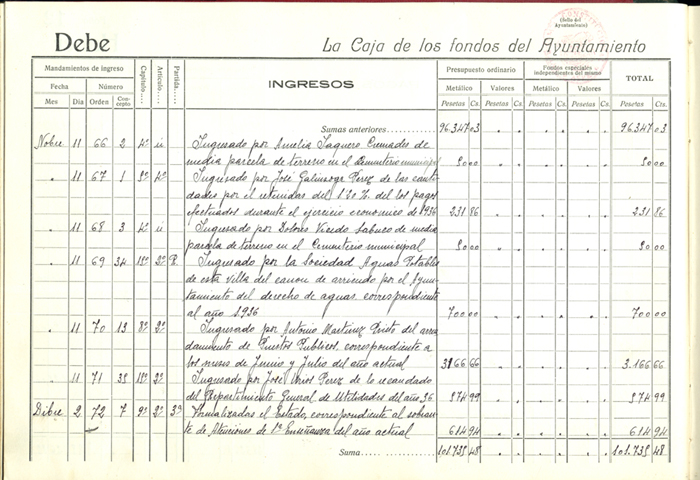 (Sello del
Ayuntamiento)
Debe
La Caja de los fondos del Ayuntamiento
Mandamientos de ingreso
Fecha Número
Mes Día Orden Concepto
Capítulo.... Artículo.... Partida....
INGRESOS
Presupuesto ordinario
Metálico Valores
Pesetas Cs. Pesetas Cs.
Fondos especiales independientes del mismo
Metálico Valores
Pesetas Cs. Pesetas Cs.
TOTAL
Pesetas Cts.
Sumas anteriores 96.347 03 96.347 03
Nobre 11 66 2 4º Ingresado por Amelia Cremades de
media parcela de terreno en el Cementerio municipal 50 00 50 00
" 11 67 1 Ingresado por José Perez de las canti-
dades por el retenidas del 1'30 % de los pagos
efectuados durante el ejercicio economico de 1936 231 86 231 86
" 11 68 3 4º Ingresado por Dolores Vicedo de media
parcela de terreno en el Cementerio municipal 50 00 50 00
" 11 69 34 2º Ingresado por la Sociedad Aguas Potables
de esta Villa del canon de arriendo por el Ayun-
tamiento del derecho de aguas, correspondiente
al año 1936 700 00 700 00
" 11 70 13 8º 2º Ingresado por Antonio Martinez del arren-
damiento de Puestos Publicos, correspondiente a
los meses de Junio y Julio del año actual 3166 66 3.166 66
" 11 71 35 Ingresado por José Perez de lo recaudado
del Repartimiento General de Utilidades del año 36 574 99 574 99
Dibre 2 72 7 9º 2º 3º Formalizadas el Estado, correspondiente al sobran-
te de Atenciones de 1ª Enseñanza del año actual 614 94 614 94
Suma 101.735 48 101.735 48